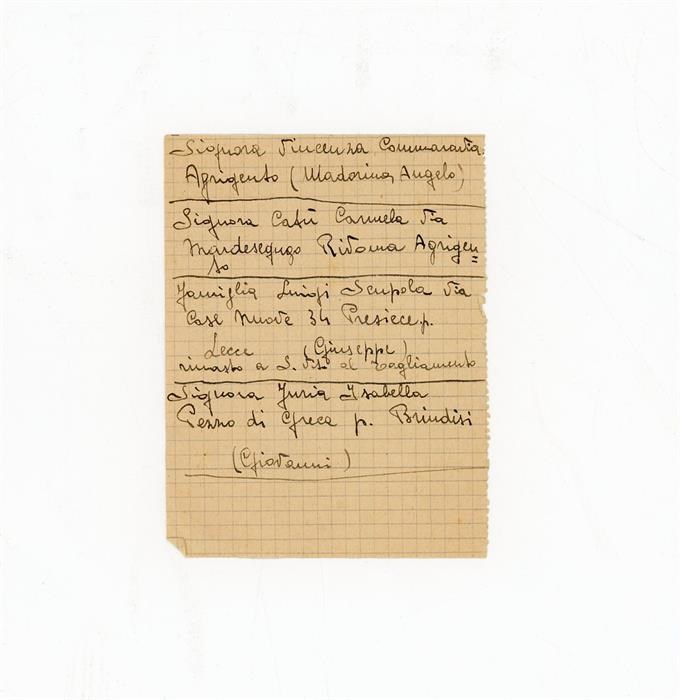 Signora Vincenza Commarata
Agrigento (Madonna Angelo)
Signora Catù Carmela Via
Ridoma Agrigen=
to
Famiglia Luigi Scupola Via
Case Nuove 34 Presicce p.
Lecce (Giuseppe)
rimasto a S. Vito al Tagliamento
Signora Isabella
Pezzo di Greca p. Brindisi
(Giovanni)